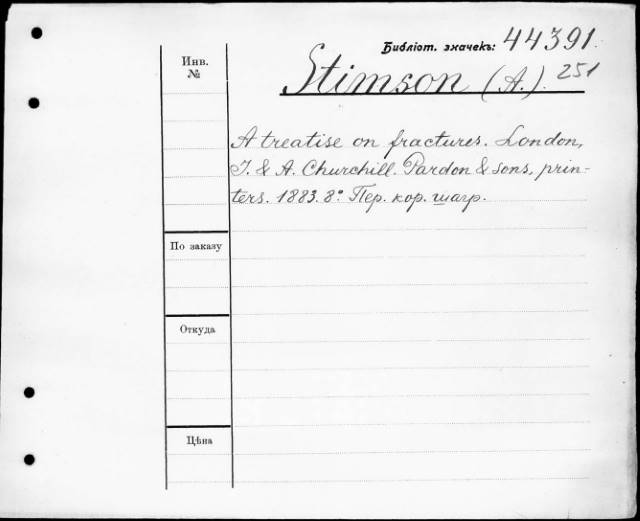 Библіот. значекъ: 44391.
251
Инв.
№
Stimson (A.).
A treatise on fractures. London,
J. & A. Churchill. Pardon & sons, prin-
ters. 1883. 8°. Пер. кор. шагр.
По заказу
Откуда
Цѣна